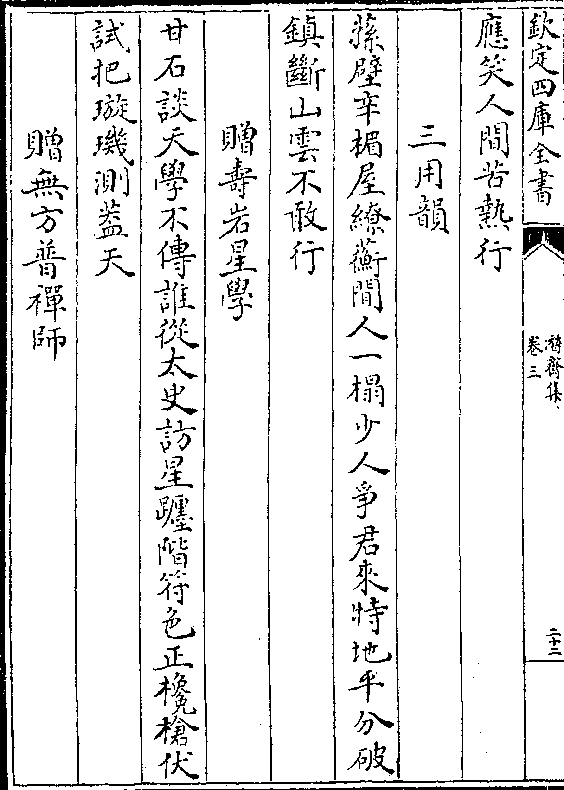 欽定四庫全書
潛齋集
卷三
二十二
應笑人間苦熱行
三用韻
蓀壁辛楣屋繚蘅閒人一榻少人爭君來特地平分破
鎮斷山雲不敢行
贈壽岩星學
甘石談天學不傳誰從太史訪星躔階符色正欃槍伏
試把璇璣測葢天
贈無方普禪師